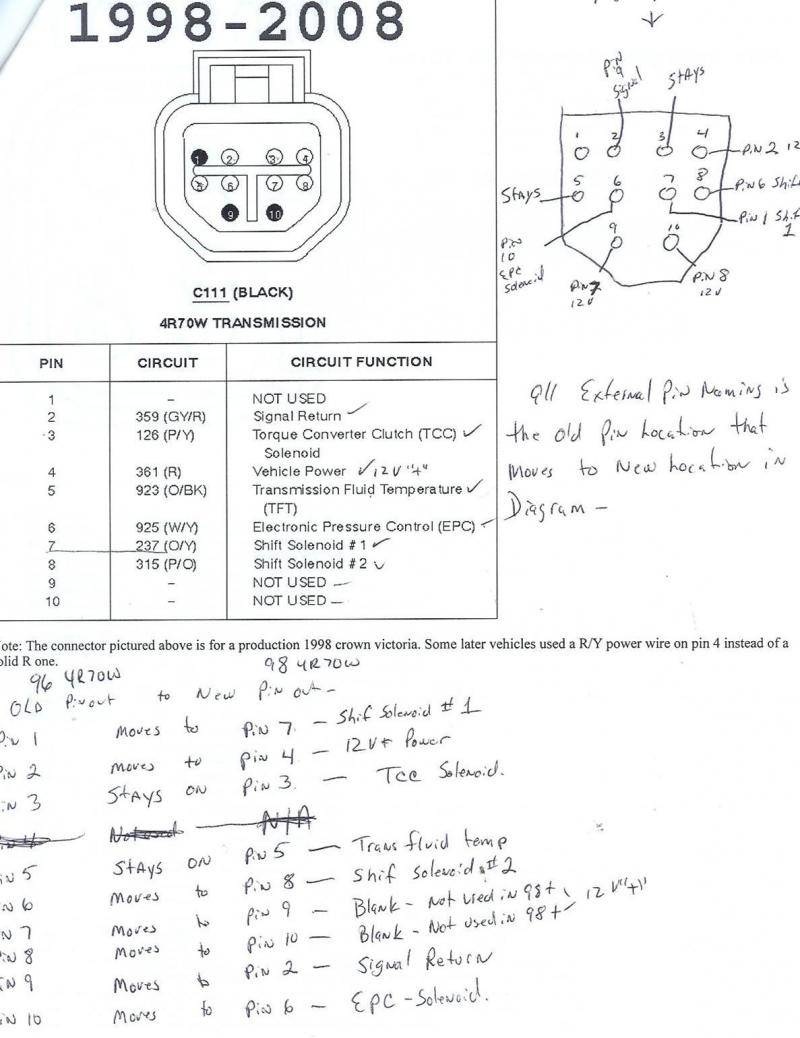 1998-2008
1 2 3 4
5 6 7 8
9 10
C111 (BLACK)
4R70W TRANSMISSION
PIN CIRCUIT CIRCUIT FUNCTION
1 – NOT USED
2 359 (GY/R) Signal Return ✓
3 126 (P/Y) Torque Converter Clutch (TCC) ✓
Solenoid
4 361 (R) Vehicle Power ✓ 12V "+"
5 923 (O/BK) Transmission Fluid Temperature ✓
(TFT)
6 925 (W/Y) Electronic Pressure Control (EPC) ✓
7 237 (O/Y) Shift Solenoid #1 ✓
8 315 (P/O) Shift Solenoid #2 ✓
9 – NOT USED –
10 – NOT USED –
PiN 9 Signal
STAYS
1 2 3 4
PiN 2 12
5 6 7 8
STAYS
PiN 6 Shif
Pin 1 Shif 1
9 10
PiN 10 EPC Solenoid
PiN 7 12V
PiN 8 12V
All External Pin Naming is
the old Pin Location that
Moves to New Location in
Diagram –
ote: The connector pictured above is for a production 1998 crown victoria. Some later vehicles used a R/Y power wire on pin 4 instead of a
olid R one.
96 4R70W 98 4R70W
OLD Pinout to New Pin out –
Pin 1 Moves to Pin 7 – Shif Solenoid #1
PiN 2 Moves to Pin 4 – 12V+ Power
iN 3 STAYS ON Pin 3 – Tcc Solenoid.
Not used – N/A
iN 5 STAYS ON Pin 5 – Trans fluid temp
iN 6 Moves to Pin 8 – Shif Solenoid #2
iN 7 Moves to Pin 9 – Blank – Not used in 98+ 12V"+"
PiN 8 Moves to Pin 10 – Blank – Not used in 98+
iN 9 Moves to Pin 2 – Signal Return
iN 10 Moves to Pin 6 – EPC – Solenoid.